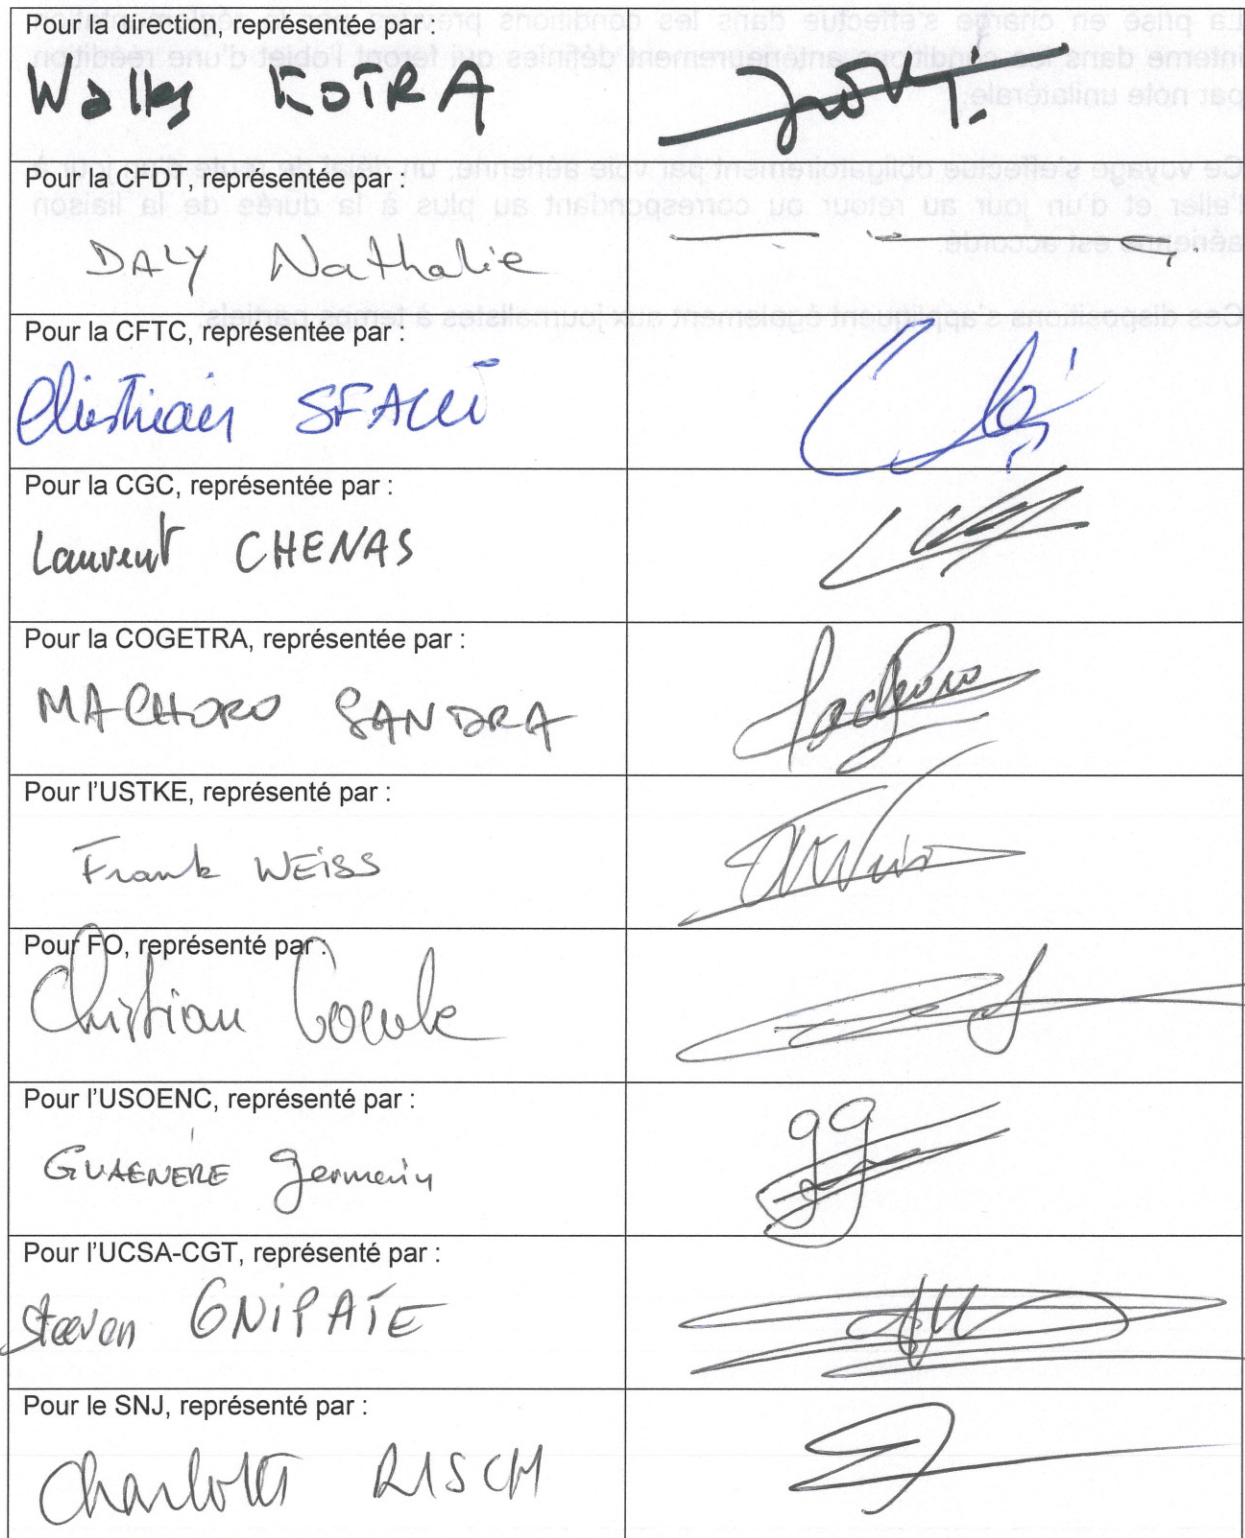 Pour la direction, représentée par :
Walles KOTRA
Pour la CFDT, représentée par :
DALY Nathalie
Pour la CFTC, représentée par :
Christian SFALLI
Pour la CGC, représentée par :
Laurent CHENAS
Pour la COGETRA, représentée par :
MACHORO SANDRA
Pour l'USTKE, représenté par :
Frank WEISS
Pour FO, représenté par :
Christian
Pour l'USOENC, représenté par :
GUAENERE Germain
Pour l'UCSA-CGT, représenté par :
Steeven GNIPATE
Pour le SNJ, représenté par :
Charlotte RISCH